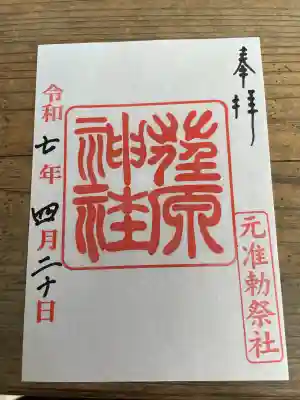 奉拝
元准勅祭社
荏原神社
令和七年四月二十日